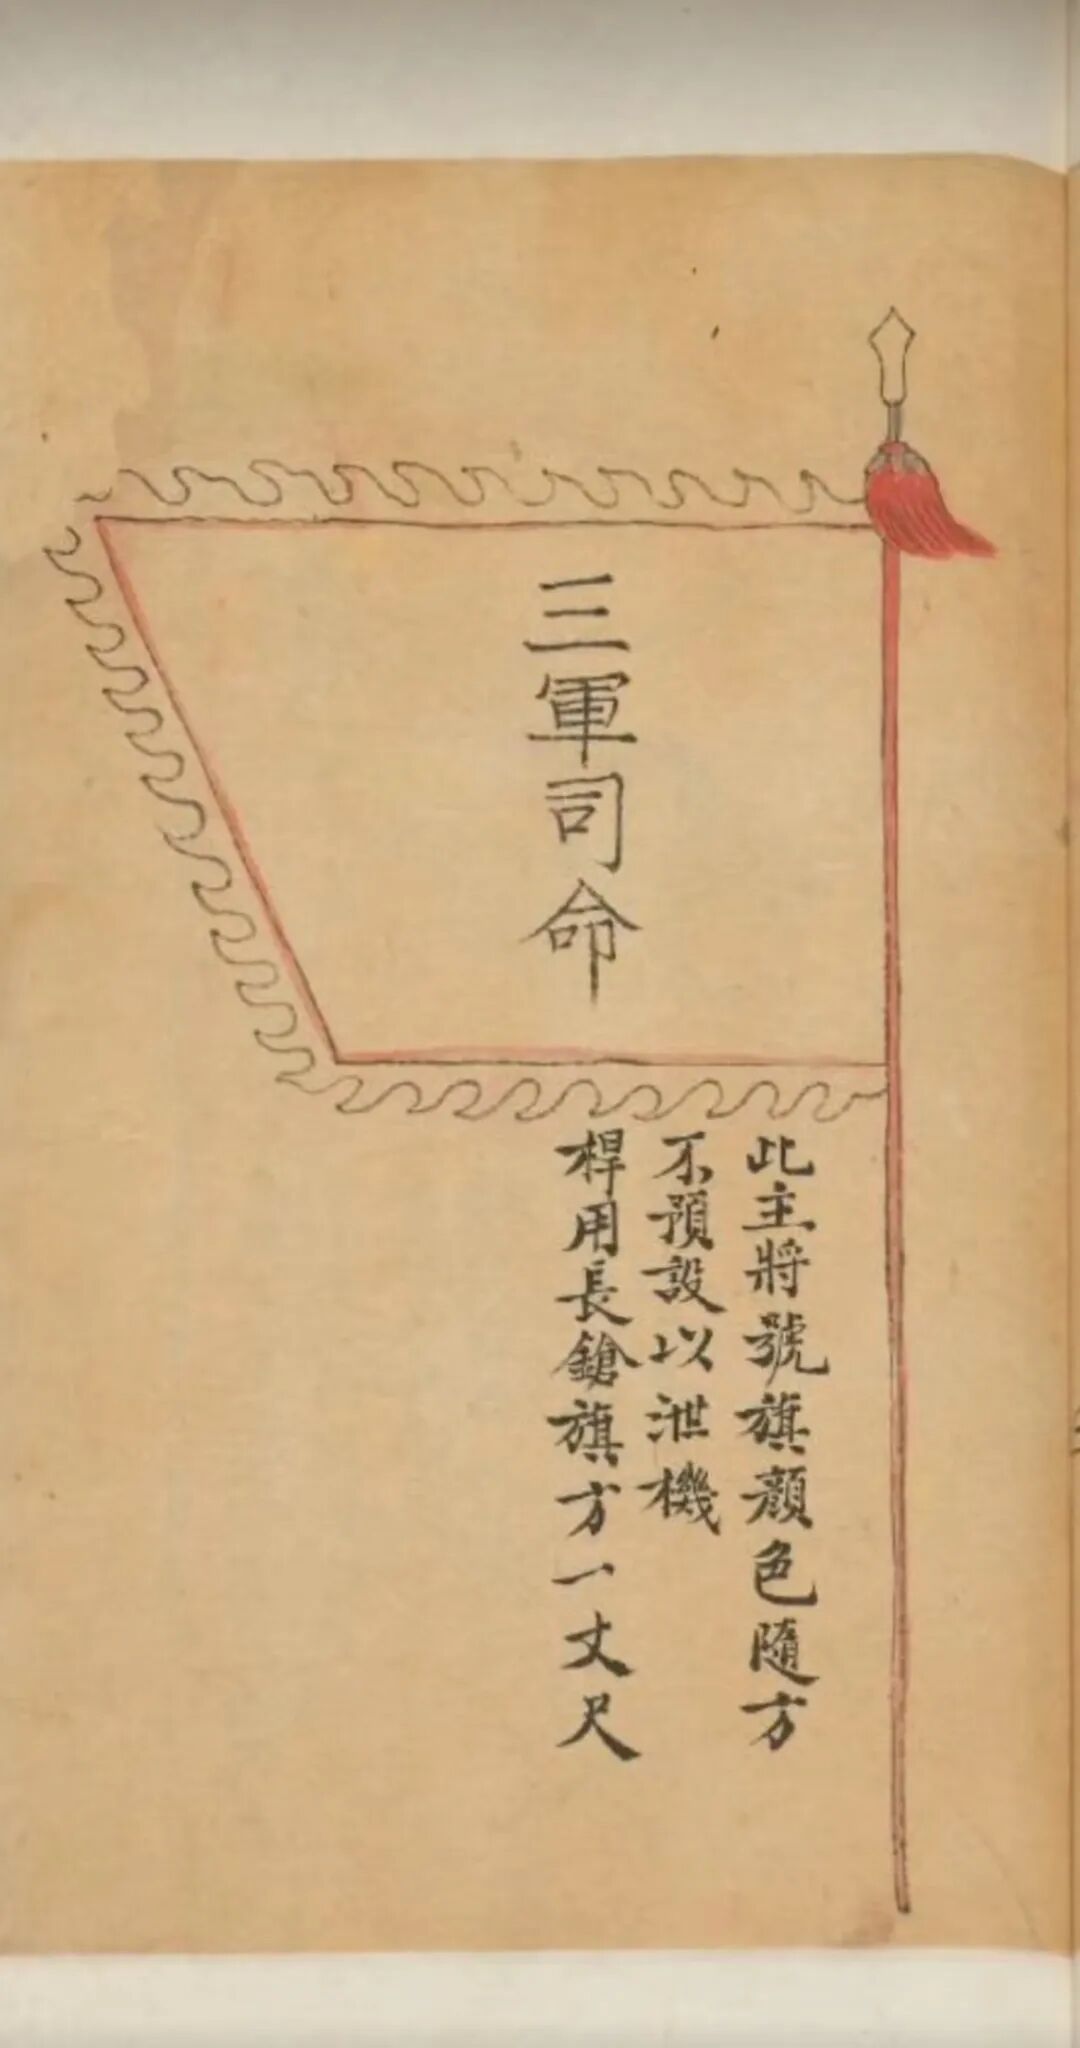 三軍司命
此主將號旗顏色隨方
不預設以泄機
桿用長鎗旗方一丈尺